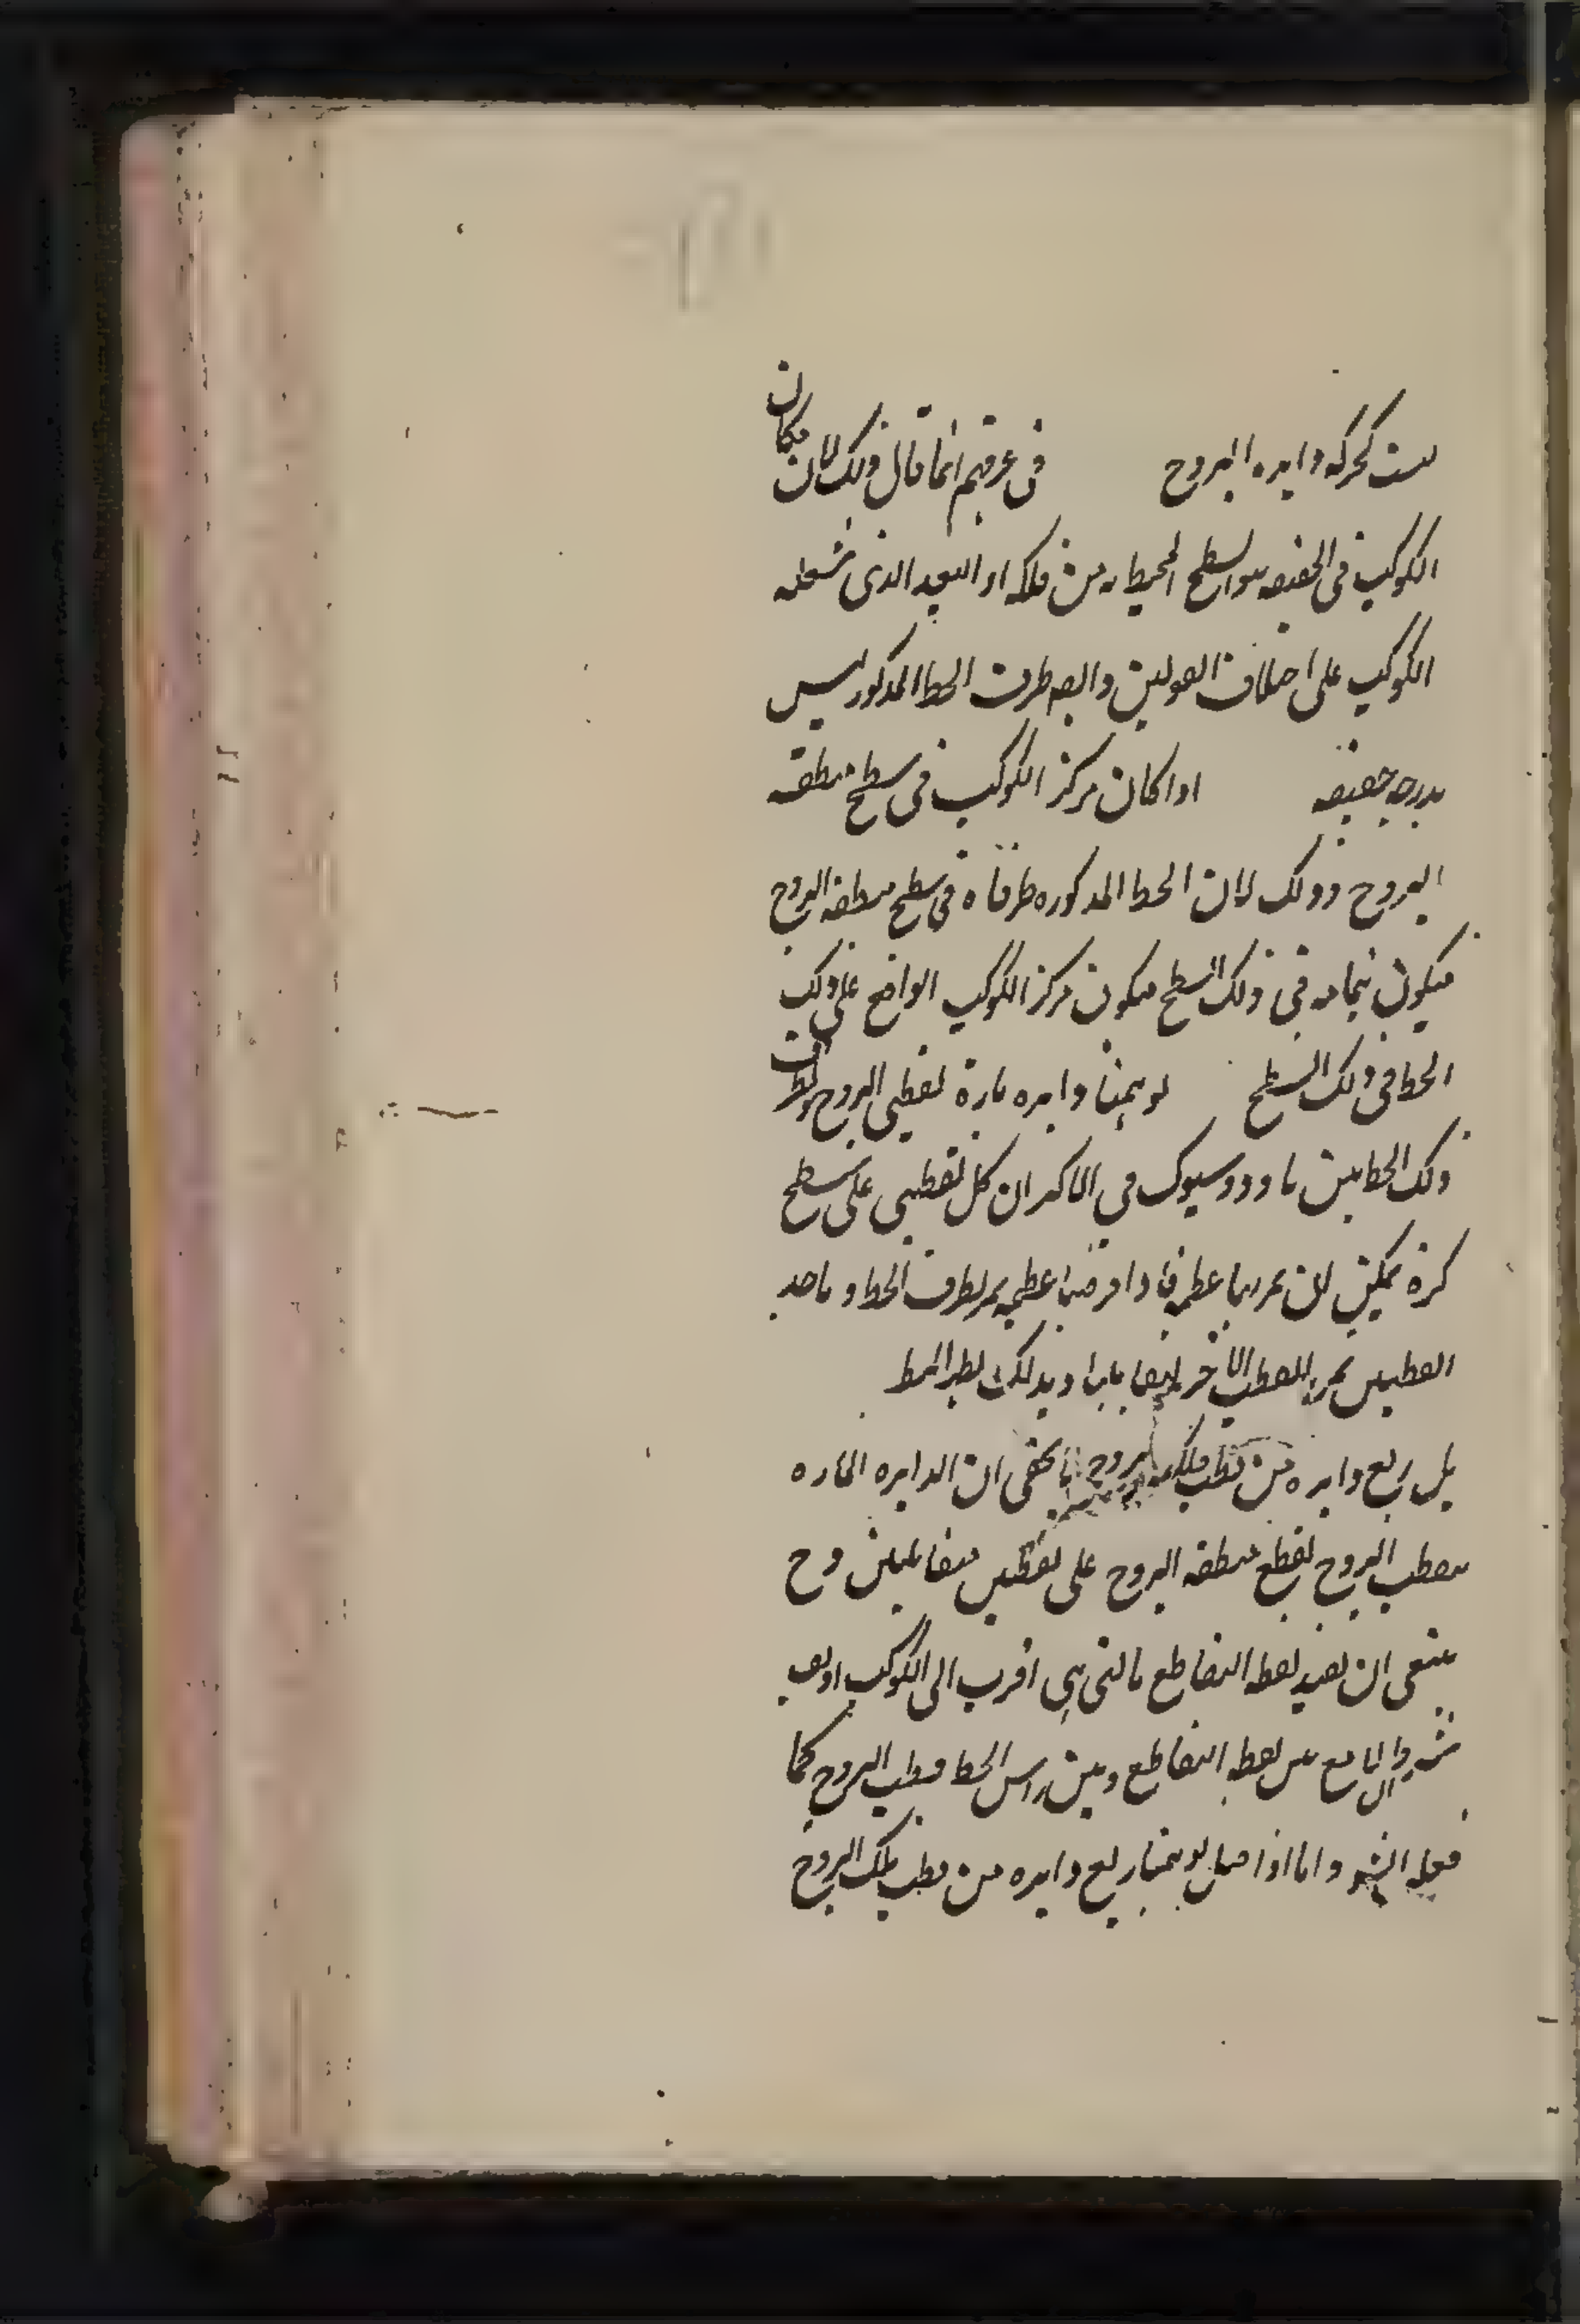 ليست لحركة دايرة البروج في عرفهم انما قال ذلك لان مكان
الكوكب في الحقيقة هو السطح المحيط به من فلكه او البعد الذي يشغله
الكوكب على اختلاف القولين وايضا طرف الخط المذكور ليس
بدرجه حقيقة اذا كان مركز الكوكب في سطح منطقة
البروج وذلك لان الخط المذكوره طرفاه في سطح منطقة البروج
فيكون بتمامه في ذلك السطح فيكون مركز الكوكب الواقع على ذلك
الخط في ذلك السطح توهمنا دايره مارة بقطبي البروج وبطرف
ذلك الخط بين ثاوذوسيوس في الاكر ان كل نقطتين على سطح
كرة يمكن ان تمر بهما عظيمة فاذا فرضنا عظيمة تمر بطرف الخط وباحد
القطبين تمر بالقطب الاخر لتقابلهما وبذلك
بل ربع دايره من قطب فلك البروج لا يخفى ان الدايره الماره
بقطب البروج تقطع منطقة البروج على نقطتين متقابلتين وح
ينبغي ان تقيد نقطة التقاطع بالتي هي اقرب الى الكوكب او
بين نقطة التقاطع وبين راس الخط قطب البروج كما
فعله الش واما اذا قيل توهمنا ربع دايره من قطب فلك البروج